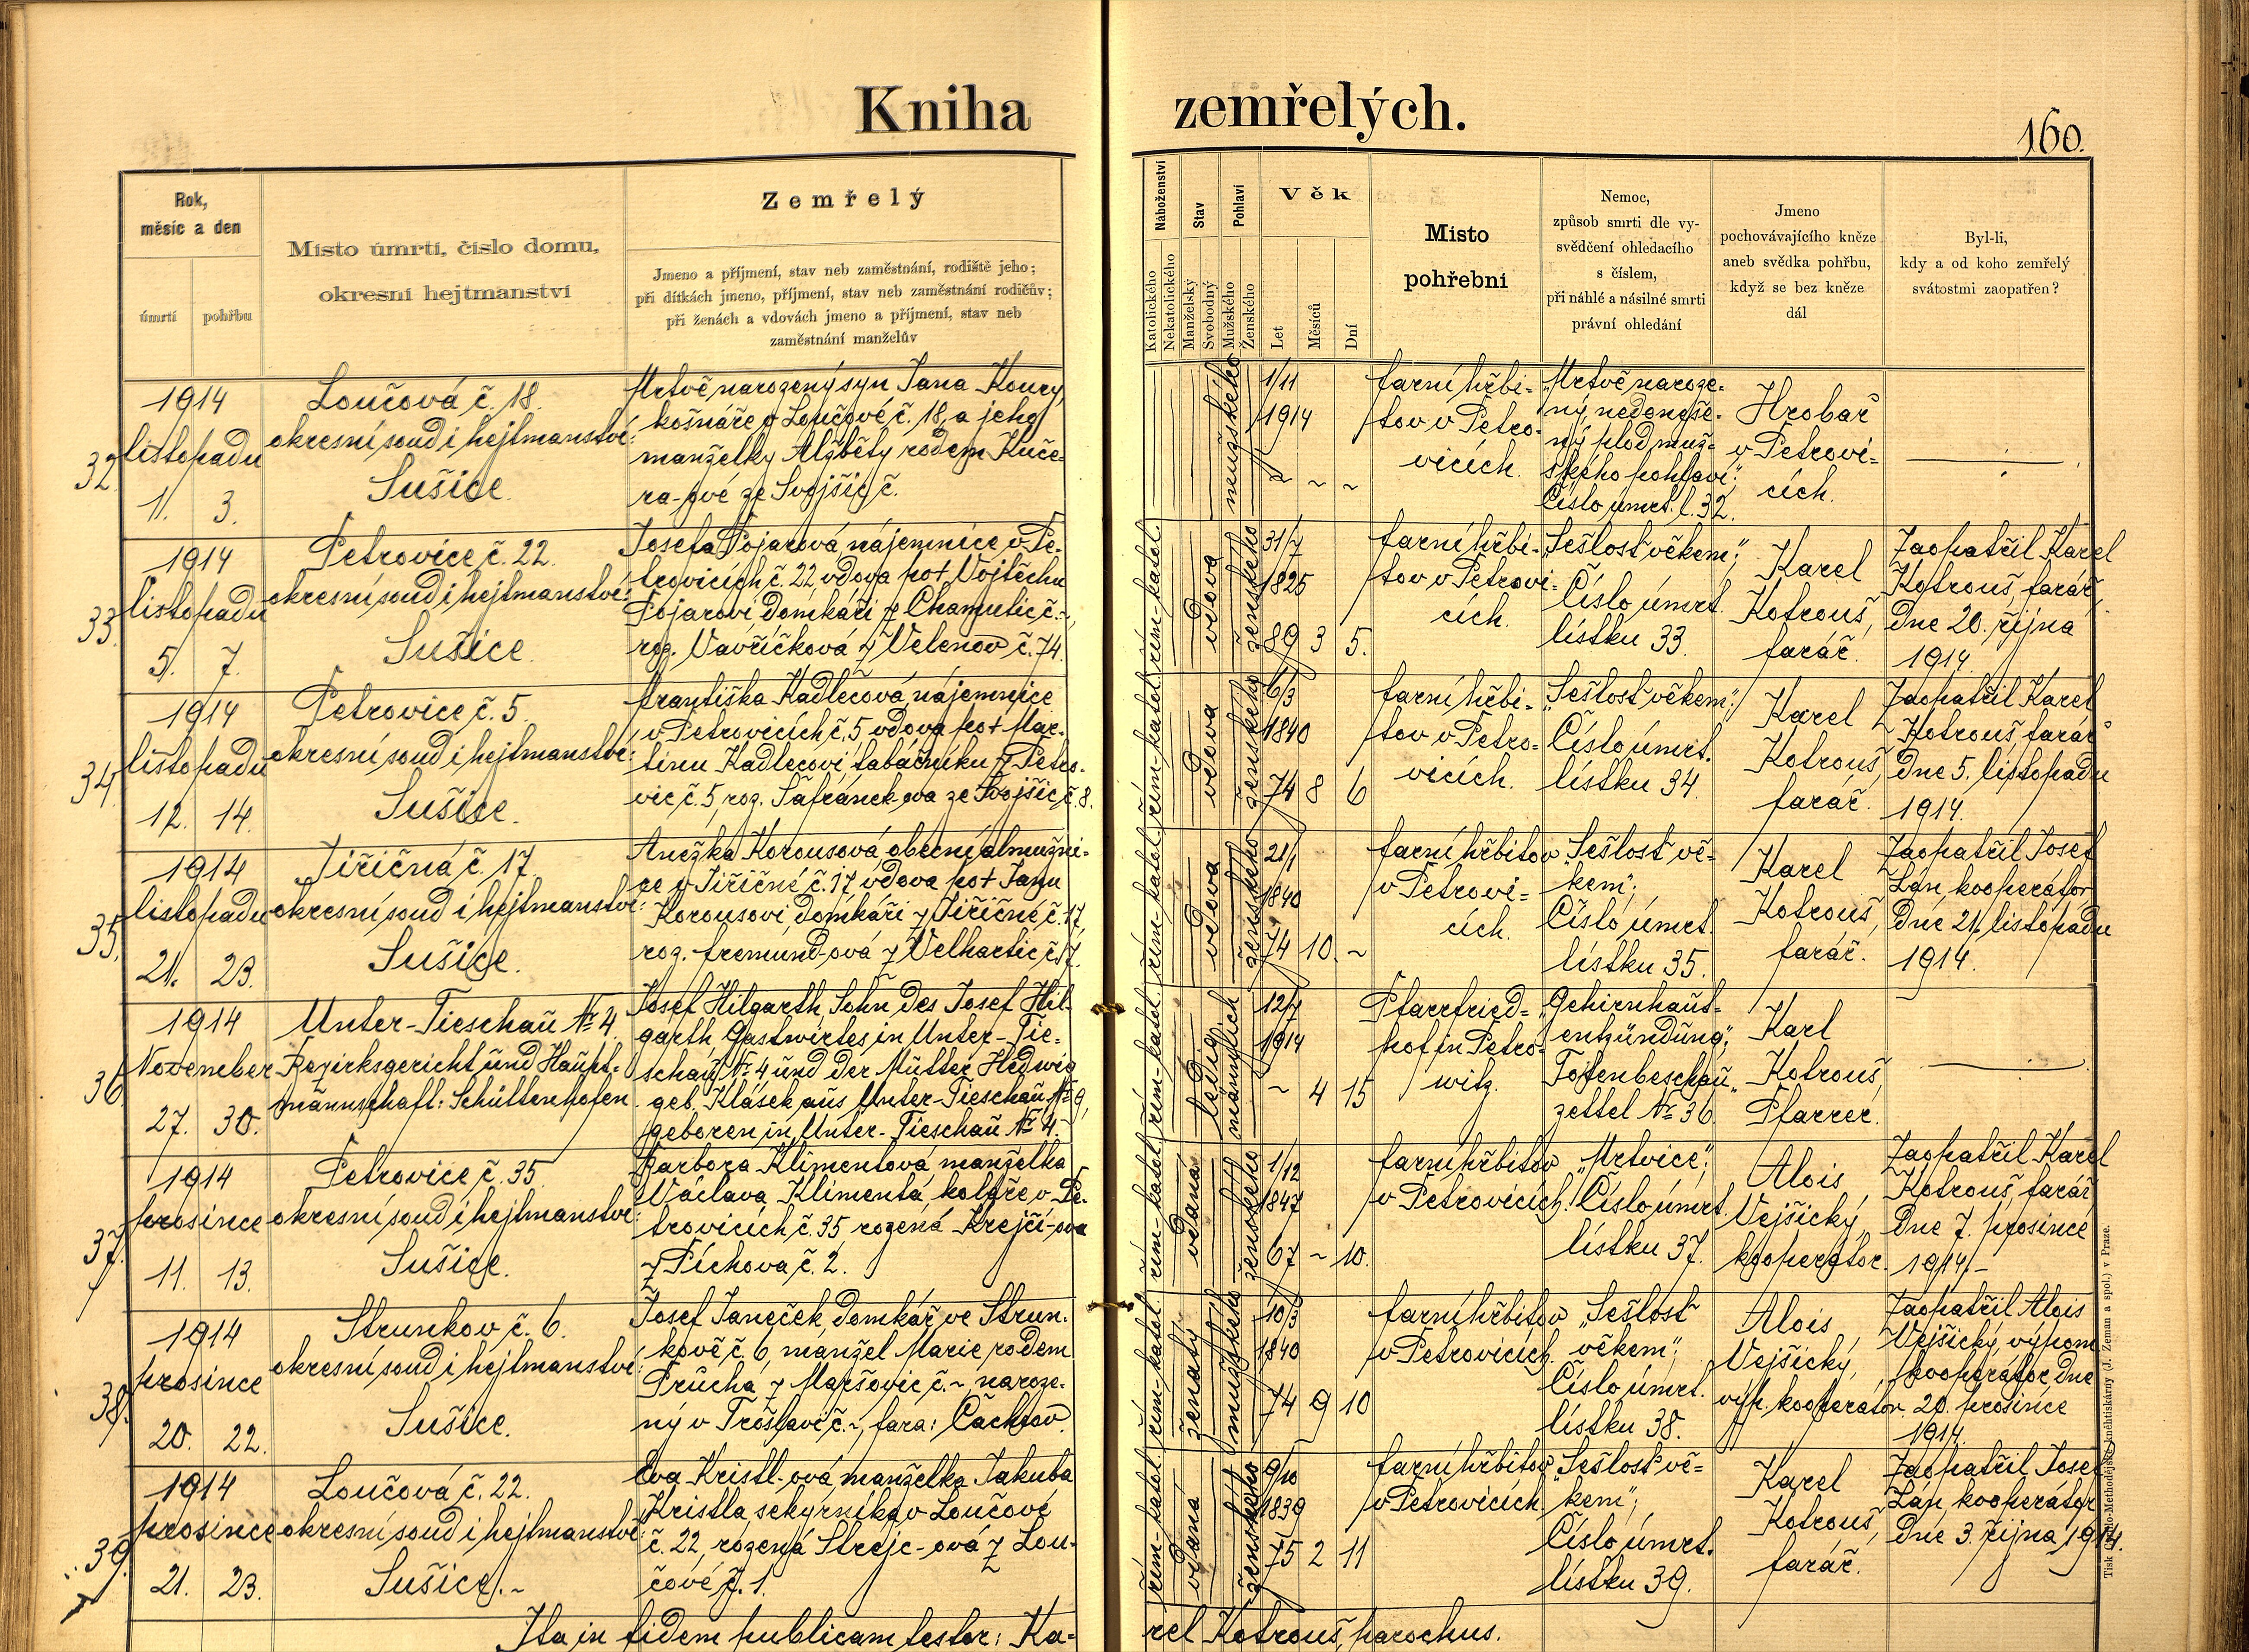 Kniha zemřelých.
160.
Rok,
měsíc a den
úmrtí
pohřbu
Místo úmrtí, číslo domu,
okresní hejtmanství
Zemřelý
Jmeno a příjmení, stav neb zaměstnání, rodiště jeho;
při dítkách jmeno, příjmení, stav neb zaměstnání rodičův;
při ženách a vdovách jmeno a příjmení, stav neb
zaměstnání manželův
Náboženství
Katolického
Nekatolického
Stav
Manželský
Svobodný
Pohlaví
Mužského
Ženského
Věk
Let
Měsíců
Dní
Místo
pohřební
Nemoc,
způsob smrti dle vy-
svědčení ohledacího
s číslem,
při náhlé a násilné smrti
právní ohledání
Jmeno
pochovávajícího kněze
aneb svědka pohřbu,
když se bez kněze
dál
Byl-li,
kdy a od koho zemřelý
svátostmi zaopatřen?
32.
1914
listopadu
1. 3.
Loučová č. 18.
okresní soud i hejtmanství:
Sušice.
Mrtvě narozený syn Jana Koury,
košnáře v Loučové č. 18, a jeho
manželky Alžběty rodem Kuče-
ra-ové ze Svojšic č.
mužského
1/11
1914
~ ~ ~
farní hřbi-
tov v Petro-
vicích.
„Mrtvě naroze-
ný, nedonoše-
ný plod muž-
ského pohlaví“;
Číslo úmrt. l. 32.
Hrobař
v Petrovi-
cích.
33.
1914
listopadu
5. 7.
Petrovice č. 22.
okresní soud i hejtmanství:
Sušice.
Josefa Pojarová, nájemnice v Pe-
trovicích č. 22, vdova po † Vojtěchu
Pojarovi, domkáři z Chamutic č. ~,
roz. Vavříčková z Velenov č. 74.
řím.-katol.
vdova
ženského
31/7
1825
89 3 5.
farní hřbi-
tov v Petrovi-
cích.
„Sešlost věkem“;
Číslo úmrt.
lístku 33.
Karel
Kotrouš,
farář.
Zaopatřil Karel
Kotrouš, farář,
dne 20. října
1914.
34.
1914
listopadu
12. 14.
Petrovice č. 5.
okresní soud i hejtmanství:
Sušice.
Františka Kadlecová, nájemnice
v Petrovicích č. 5 vdova po † Mar-
tinu Kadlecovi, tabáčníku z Petro-
vic č. 5, roz. Šafránek-ova ze Svojšic č. 8.
řím.-katol.
vdova
ženského
6/3
1840
74 8 6
farní hřbi-
tov v Petro-
vicích.
„Sešlost věkem“;
Číslo úmrt.
lístku 34.
Karel
Kotrouš,
farář.
Zaopatřil Karel
Kotrouš, farář
dne 5. listopadu
1914.
35.
1914
listopadu
21. 23.
Jiřičná č. 17.
okresní soud i hejtmanství:
Sušice.
Anežka Korousová, obecní almužni-
ce v Jiřičné č. 17 vdova po † Janu
Korousovi, domkáři z Jiřičné č. 17,
roz. Fremund-ová z Velhartic č. 17.
řím.-katol.
vdova
ženského
21/1
1840
74 10. ~
farní hřbitov
v Petrovi-
cích.
„Sešlost vě-
kem“;
Číslo úmrt.
lístku 35.
Karel
Kotrouš,
farář.
Zaopatřil Josef
Lán, kooperátor
dne 21. listopadu
1914.
36.
1914
November
27. 30.
Unter-Tieschau № 4.
Bezirksgericht und Haupt-
mannschaft: Schüttenhofen
Josef Hilgarth, Sohn des Josef Hil-
garth, Gastwirtes in Unter-Tie-
schau № 4 und der Mutter Hedwig
geb. Klásek aus Unter-Tieschau № 9,
geboren in Unter-Tieschau № 4.~
řím.-katol.
ledig
männlich
12/7
1914
~ 4 15
Pfarrfried-
hof in Petro-
witz.
„Gehirnhaut-
entzündung“;
Totenbeschau-
zettel № 36.
Karl
Kotrouš,
Pfarrer.
37.
1914
prosince
11. 13.
Petrovice č. 35.
okresní soud i hejtmanství:
Sušice.
Barbora Klimentová, manželka
Václava Klimenta, koláře v Pe-
trovicích č. 35, rozená Krejčí-ova
z Píchova č. 2.
řím.-katol.
vdaná
ženského
1/12
1847
67 ~ 10.
farní hřbitov
v Petrovicích.
„Mrtvice“;
Číslo úmrt.
lístku 37.
Alois
Vejšický,
kooperátor.
Zaopatřil Karel
Kotrouš, farář
dne 7. prosince
1914.–
38.
1914
prosince
20. 22.
Strunkov č. 6.
okresní soud i hejtmanství:
Sušice.
Josef Janeček, domkář ve Strun-
kově č. 6, manžel Marie, rodem
Průcha z Maršovic č. ~, naroze-
ný v Troslavi č. ~, fara: Čachrov.
řím.-katol.
ženatý
mužského
10/3
1840
74 9 10
farní hřbitov
v Petrovicích.
„Sešlost
věkem“;
Číslo úmrt.
lístku 38.
Alois
Vejšický,
výp. kooperátor.
Zaopatřil Alois
Vejšický, výpom.
kooperátor dne
20. prosince
1914.
39.
1914
prosince
21. 23.
Loučová č. 22.
okresní soud i hejtmanství:
Sušice.~
Eva Kristl-ová, manželka Jakuba
Kristla, sekyrníka v Loučové
č. 22, rozená Strejc-ová z Lou-
čové č. 1.
řím.-katol.
vdaná
ženského
9/10
1839
75 2 11
farní hřbitov
v Petrovicích.
„Sešlost vě-
kem“;
Číslo úmrt.
lístku 39.
Karel
Kotrouš,
farář.
Zaopatřil Josef
Lán, kooperátor
dne 3. října 1914.
Ita in fidem publicam testor: Ka-
rel Kotrouš, parochus.
Tisk Cyrillo-Methodějské knihtiskárny (J. Zeman a spol.) v Praze.